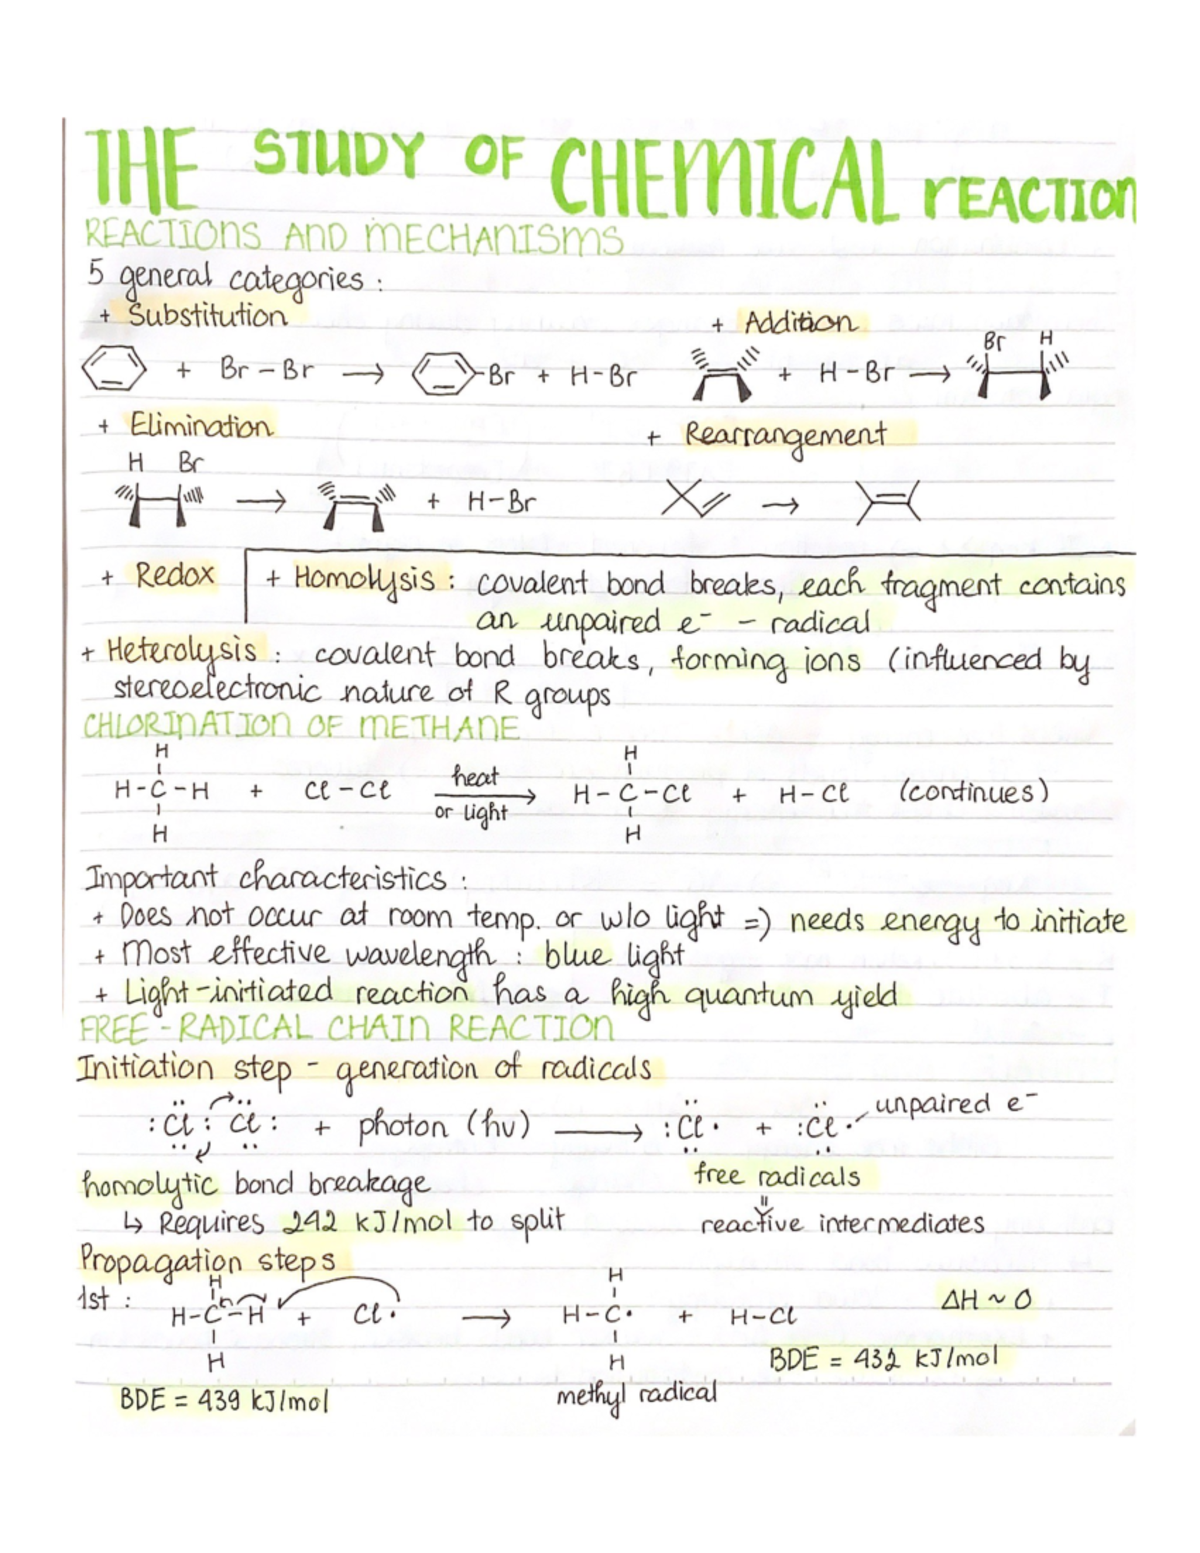 THE STUDY OF CHEMICAL REACTION
REACTIONS AND MECHANISMS
5 general categories :
+ Substitution
+ Addition
+ Br - Br → Br + H-Br
Br H
+ H-Br →
+ Elimination
+ Rearrangement
H Br
→ + H-Br
→
+ Redox
+ Homolysis : covalent bond breaks, each fragment contains
an unpaired e⁻ - radical
+ Heterolysis : covalent bond breaks, forming ions (influenced by
stereoelectronic nature of R groups
CHLORINATION OF METHANE
H H
H-C-H + Cl-Cl heat or light → H-C-Cl + H-Cl (continues)
H H
Important characteristics :
+ Does not occur at room temp. or w/o light =) needs energy to initiate
+ Most effective wavelength : blue light
+ Light-initiated reaction has a high quantum yield
FREE-RADICAL CHAIN REACTION
Initiation step - generation of radicals
:Cl : Cl: + photon (hν) → :Cl· + :Cl· unpaired e⁻
homolytic bond breakage
free radicals
↳ Requires 242 kJ/mol to split
reactive intermediates
Propagation steps
H H
1st : H-C-H + Cl· → H-C· + H-Cl ΔH ~ 0
H H
BDE = 432 kJ/mol
BDE = 439 kJ/mol
methyl radical